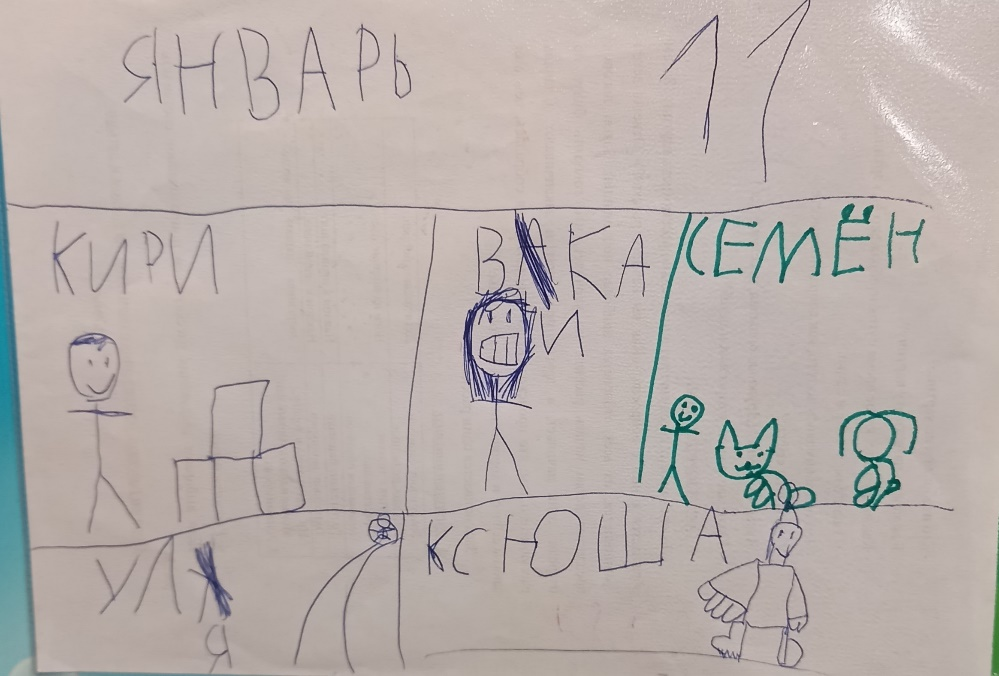 ЯНВАРЬ 11
КИРИ
ВАКА
И
СЕМЁН
УЛ
Я
КСЮША